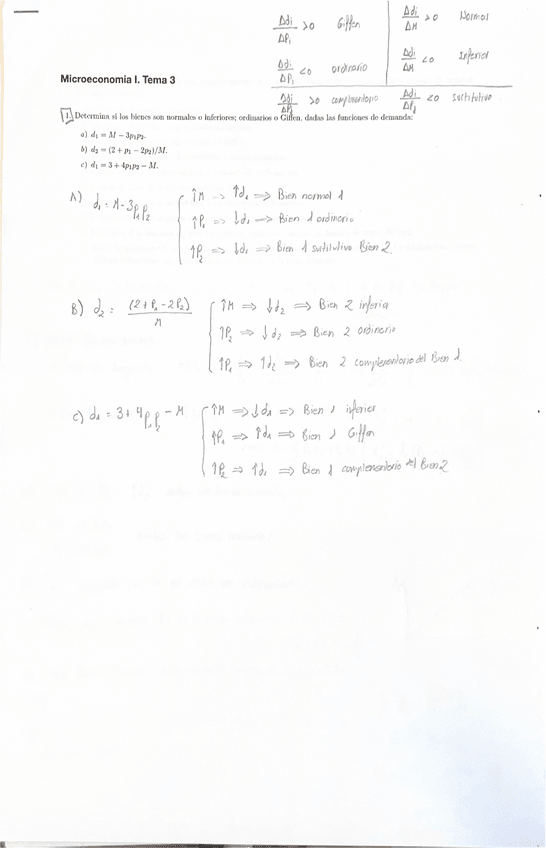 Δdi/ΔPi >0 Giffen Δdi/ΔM >0 Normal
Δdi/ΔPi <0 ordinario Δdi/ΔM <0 Inferior
Δdi/ΔPj >0 complementario Δdi/ΔPj <0 sustitutivo
Microeconomia I. Tema 3
1. Determina si los bienes son normales o inferiores; ordinarios o Giffen, dadas las funciones de demanda:
a) d₁ = M − 3p₁p₂.
b) d₂ = (2 + p₁ − 2p₂)/M.
c) d₁ = 3 + 4p₁p₂ − M.
A) d₁ = M - 3p₁p₂
↑M ⇒ ↑d₁ ⇒ Bien normal 1
↑P₁ ⇒ ↓d₁ ⇒ Bien 1 ordinario
↑P₂ ⇒ ↓d₁ ⇒ Bien 1 sustitutivo Bien 2.
B) d₂ = (2 + P₁ - 2P₂)/M
↑M ⇒ ↓d₂ ⇒ Bien 2 inferior
↑P₂ ⇒ ↓d₂ ⇒ Bien 2 ordinario
↑P₁ ⇒ ↑d₂ ⇒ Bien 2 complementario del Bien 1.
C) d₁ = 3 + 4p₁p₂ - M
↑M ⇒ ↓d₁ ⇒ Bien 1 inferior
↑P₁ ⇒ ↑d₁ ⇒ Bien 1 Giffen
↑P₂ ⇒ ↑d₁ ⇒ Bien 1 complementario del Bien 2